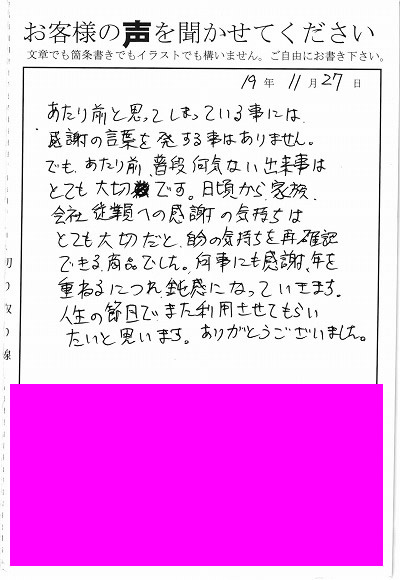 お客様の声を聞かせてください
文章でも箇条書きでもイラストでも構いません。ご自由にお書き下さい。
19年 11月27日
あたり前と思ってしまっている事には
感謝の言葉を発する事はありません。
でも、あたり前、普段何気ない出来事は
とても大切です。日頃から、家族、
会社従業員への感謝の気持ちは
とても大切だと、自分の気持ちを再確認
できる商品でした。何事にも感謝、年を
重ねるにつれ鈍感になっていきます。
人生の節目でまた利用させてもらい
たいと思います。ありがとうございました。
切り取り線